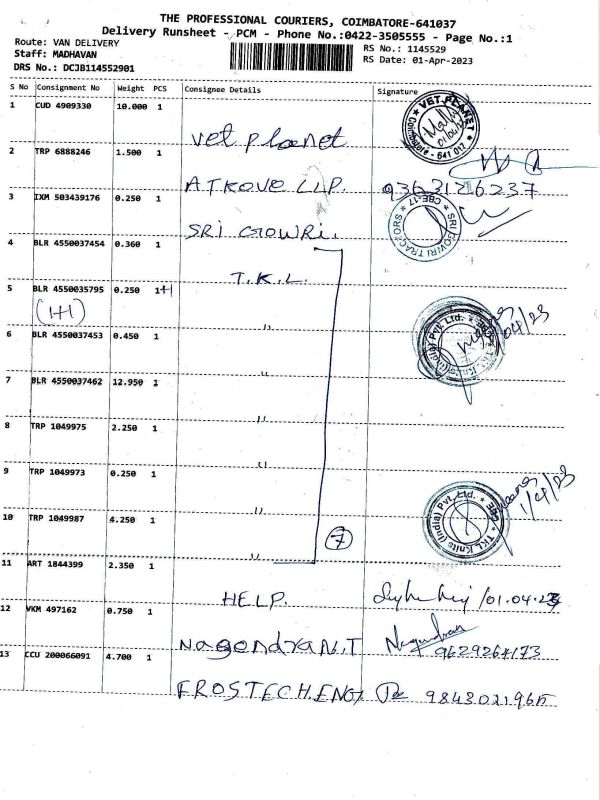 THE PROFESSIONAL COURIERS, COIMBATORE-641037
Delivery Runsheet - PCM - Phone No.:0422-3505555 - Page No.:1
Route: VAN DELIVERY
Staff: MADHAVAN
DRS No.: DCJB114552901
RS No.: 1145529
RS Date: 01-Apr-2023
S No Consignment No Weight PCS Consignee Details Signature
1 CUD 4909330 10.000 1
vet planet
VET PLANET
Coimbatore - 641 017
2 TRP 6888246 1.500 1
ATKOVE LLP. 9363126237
3 IXM 503439176 0.250 1
SRI GOWRI.
SRI GOWRI TRACTORS
CBE-17
4 BLR 4550037454 0.360 1
T.K.L.
5 BLR 4550035795 0.250 1+1
(1+1)
"
6 BLR 4550037453 0.450 1
TKL Knits (India) Pvt Ltd.
"
7 BLR 4550037462 12.950 1
"
8 TRP 1049975 2.250 1
"
9 TRP 1049973 0.250 1
"
10 TRP 1049987 4.250 1
TKL Knits (India) Pvt. Ltd. CBE
1/4/23
" 7
11 ART 1844399 2.350 1
HELP. 01.04.23
12 VKM 497162 0.750 1
Nagendran.T Nagendran
9629264173
13 CCU 200066091 4.700 1
FROSTECH.ENG 9843021965